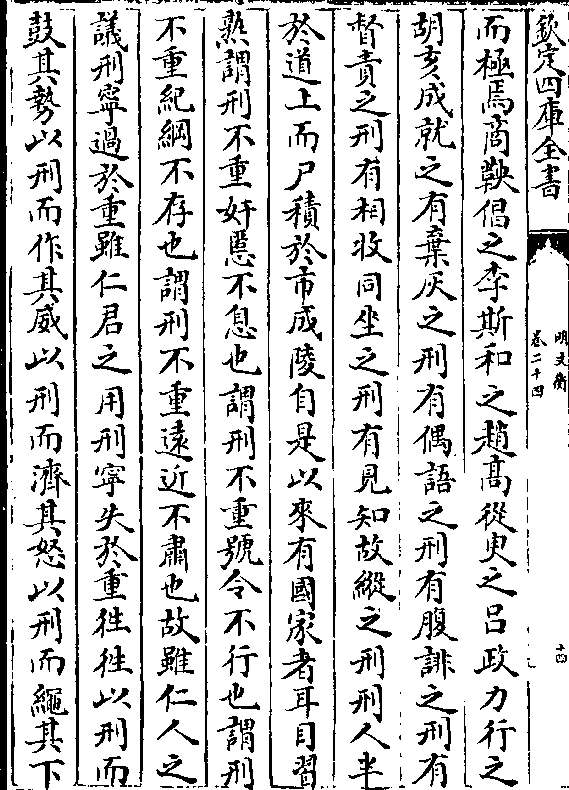 欽定四庫全書
明文衡
卷二十四
十四
而極焉商鞅倡之李斯和之趙髙從臾之吕政力行之
胡亥成就之有棄灰之刑有偶語之刑有腹誹之刑有
督責之刑有相收同坐之刑有見知故縱之刑刑人半
於道上而尸積於市成陵自是以來有國家者耳目習
熟謂刑不重奸慝不息也謂刑不重號令不行也謂刑
不重紀綱不存也謂刑不重逺近不肅也故雖仁人之
議刑寜過於重雖仁君之用刑寜失於重徃徃以刑而
鼓其勢以刑而作其威以刑而濟其怒以刑而繩其下